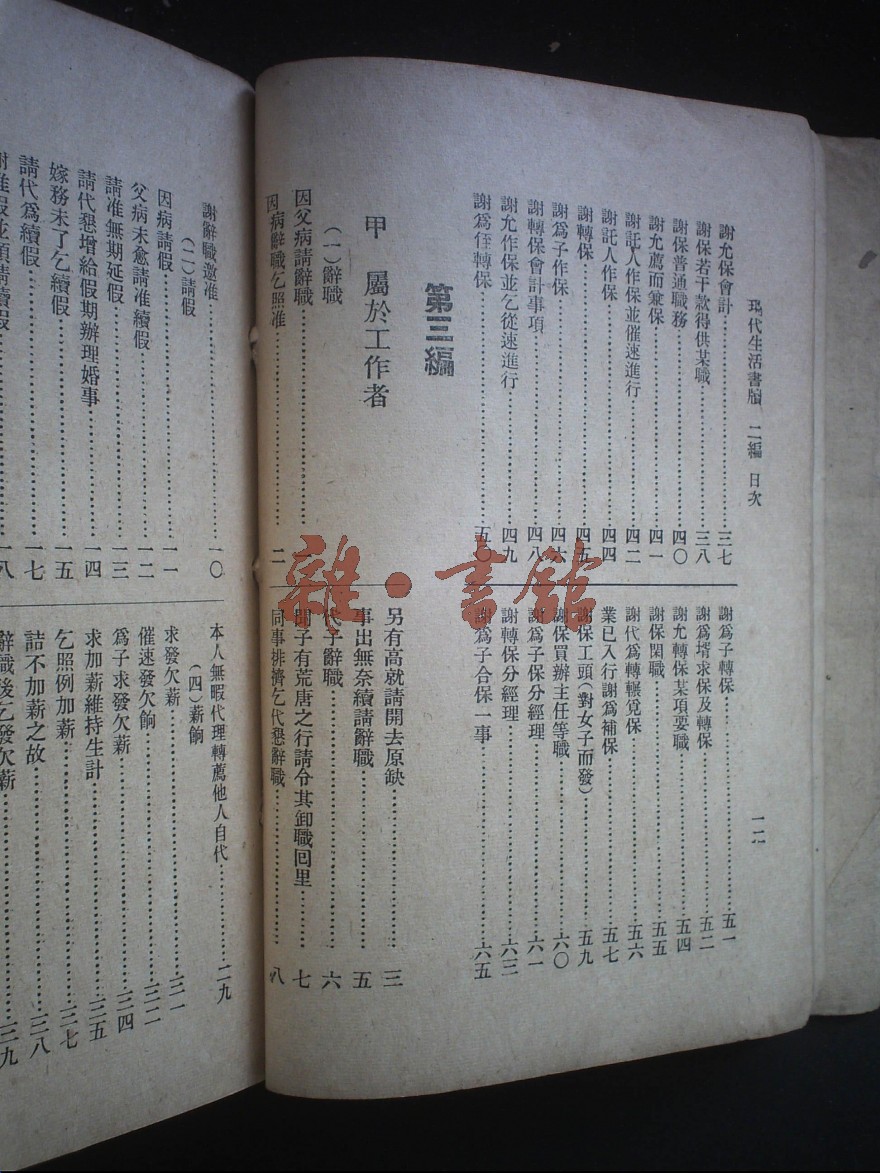 現代生活書牘 二編 目次
一二
謝允保會計……三七
謝保若干款得供某職……三八
謝保普通職務……四〇
謝允薦而兼保……四一
謝託人作保並催速進行……四二
謝託人作保……四四
謝轉保……四五
謝爲子作保……四六
謝轉保會計事項……四八
謝允作保並乞從速進行……四九
謝爲侄轉保……五〇
謝爲子轉保……五一
謝爲壻求保及轉保……五二
謝允轉保某項要職……五四
謝保閑職……五五
謝代爲轉輾覓保……五六
業已入行謝爲補保……五七
謝保工頭(對女子而發)……五九
謝保買辦主任等職……六〇
謝爲子保分經理……六一
謝轉保分經理……六三
謝爲子合保一事……六五
第三編
甲 屬於工作者
(一)辭職
因父病請辭職……
因病辭職乞照准……二
另有高就請開去原缺……三
事出無奈續請辭職……五
代子辭職……六
聞子有荒唐之行請令其卸職回里……七
同事排擠乞代懇辭職……八
謝辭職邀准……一〇
(二)請假
因病請假……一一
父病未愈請准續假……一二
請准無期延假……一三
請代懇增給假期辦理婚事……一四
嫁務未了乞續假……一五
請代爲續假……一七
謝准假並順請續假……一八
本人無暇代理轉薦他人自代……二九
(四)薪餉
求發欠薪……三一
催速發欠餉……三二
爲子求發欠薪……三四
求加薪維持生計……三五
乞照例加薪……三七
詰不加薪之故……三八
辭職後乞發欠薪……三九
雜·書館